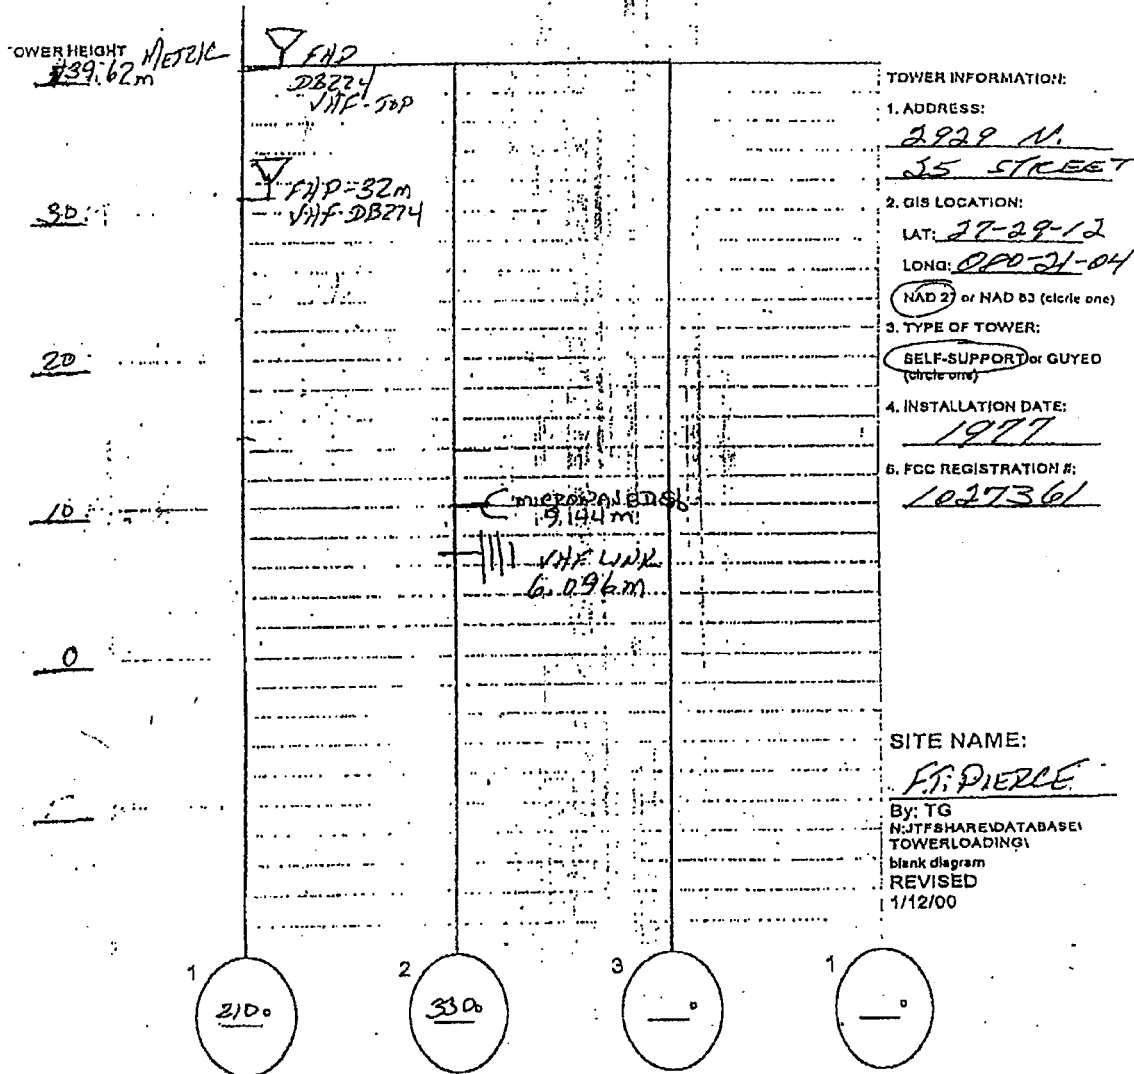 TOWER HEIGHT METRIC
39.62m
FHP
DB224
VHF-TOP
FHP-32m
VHF-DB224
30
20
10
0
MICROWAVE DISH
9.144 m
VHF LINK
6.096m
TOWER INFORMATION:
1. ADDRESS:
2929 N.
25 STREET
2. GIS LOCATION:
LAT: 27-29-12
LONG: 080-21-04
NAD 27 or NAD 83 (circle one)
3. TYPE OF TOWER:
SELF-SUPPORT or GUYED
(circle one)
4. INSTALLATION DATE:
1977
5. FCC REGISTRATION #:
1027361
SITE NAME:
FT. PIERCE
By: TG
N:JTFSHARE\DATABASE\
TOWERLOADING\
blank diagram
REVISED
1/12/00
1
2
3
1
210°
330°
__°
__°